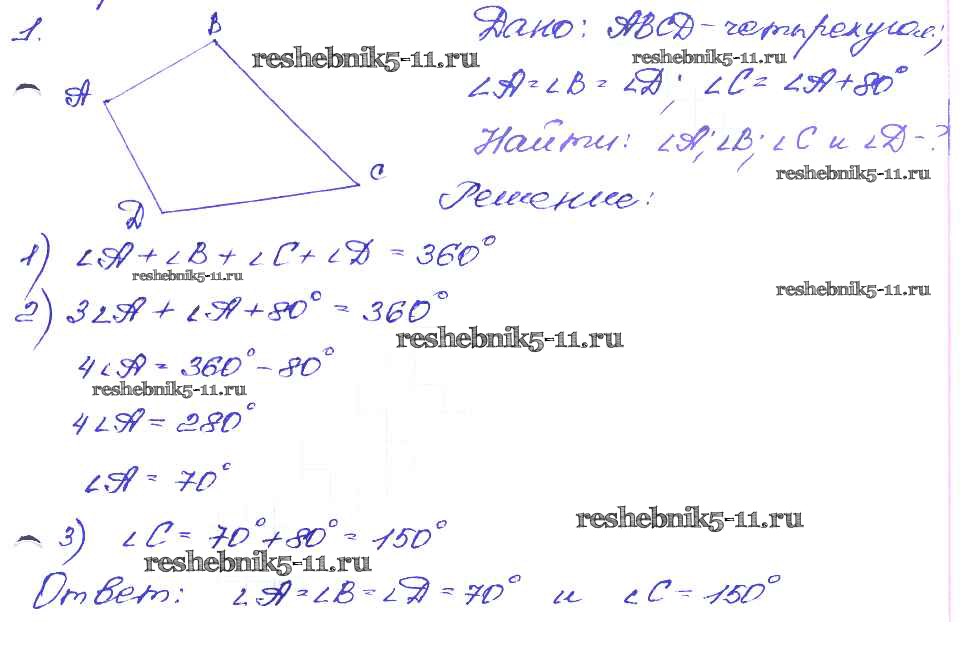 1.
B
A
C
D
Дано: ABCD - четырехугол.;
reshebnik5-11.ru
reshebnik5-11.ru
∠A = ∠B = ∠D; ∠C = ∠A + 80°
Найти: ∠A; ∠B; ∠C и ∠D - ?
reshebnik5-11.ru
Решение:
1) ∠A + ∠B + ∠C + ∠D = 360°
reshebnik5-11.ru
reshebnik5-11.ru
2) 3∠A + ∠A + 80° = 360°
reshebnik5-11.ru
4∠A = 360° - 80°
reshebnik5-11.ru
4∠A = 280°
∠A = 70°
reshebnik5-11.ru
3) ∠C = 70° + 80° = 150°
reshebnik5-11.ru
Ответ: ∠A = ∠B = ∠D = 70° и ∠C = 150°